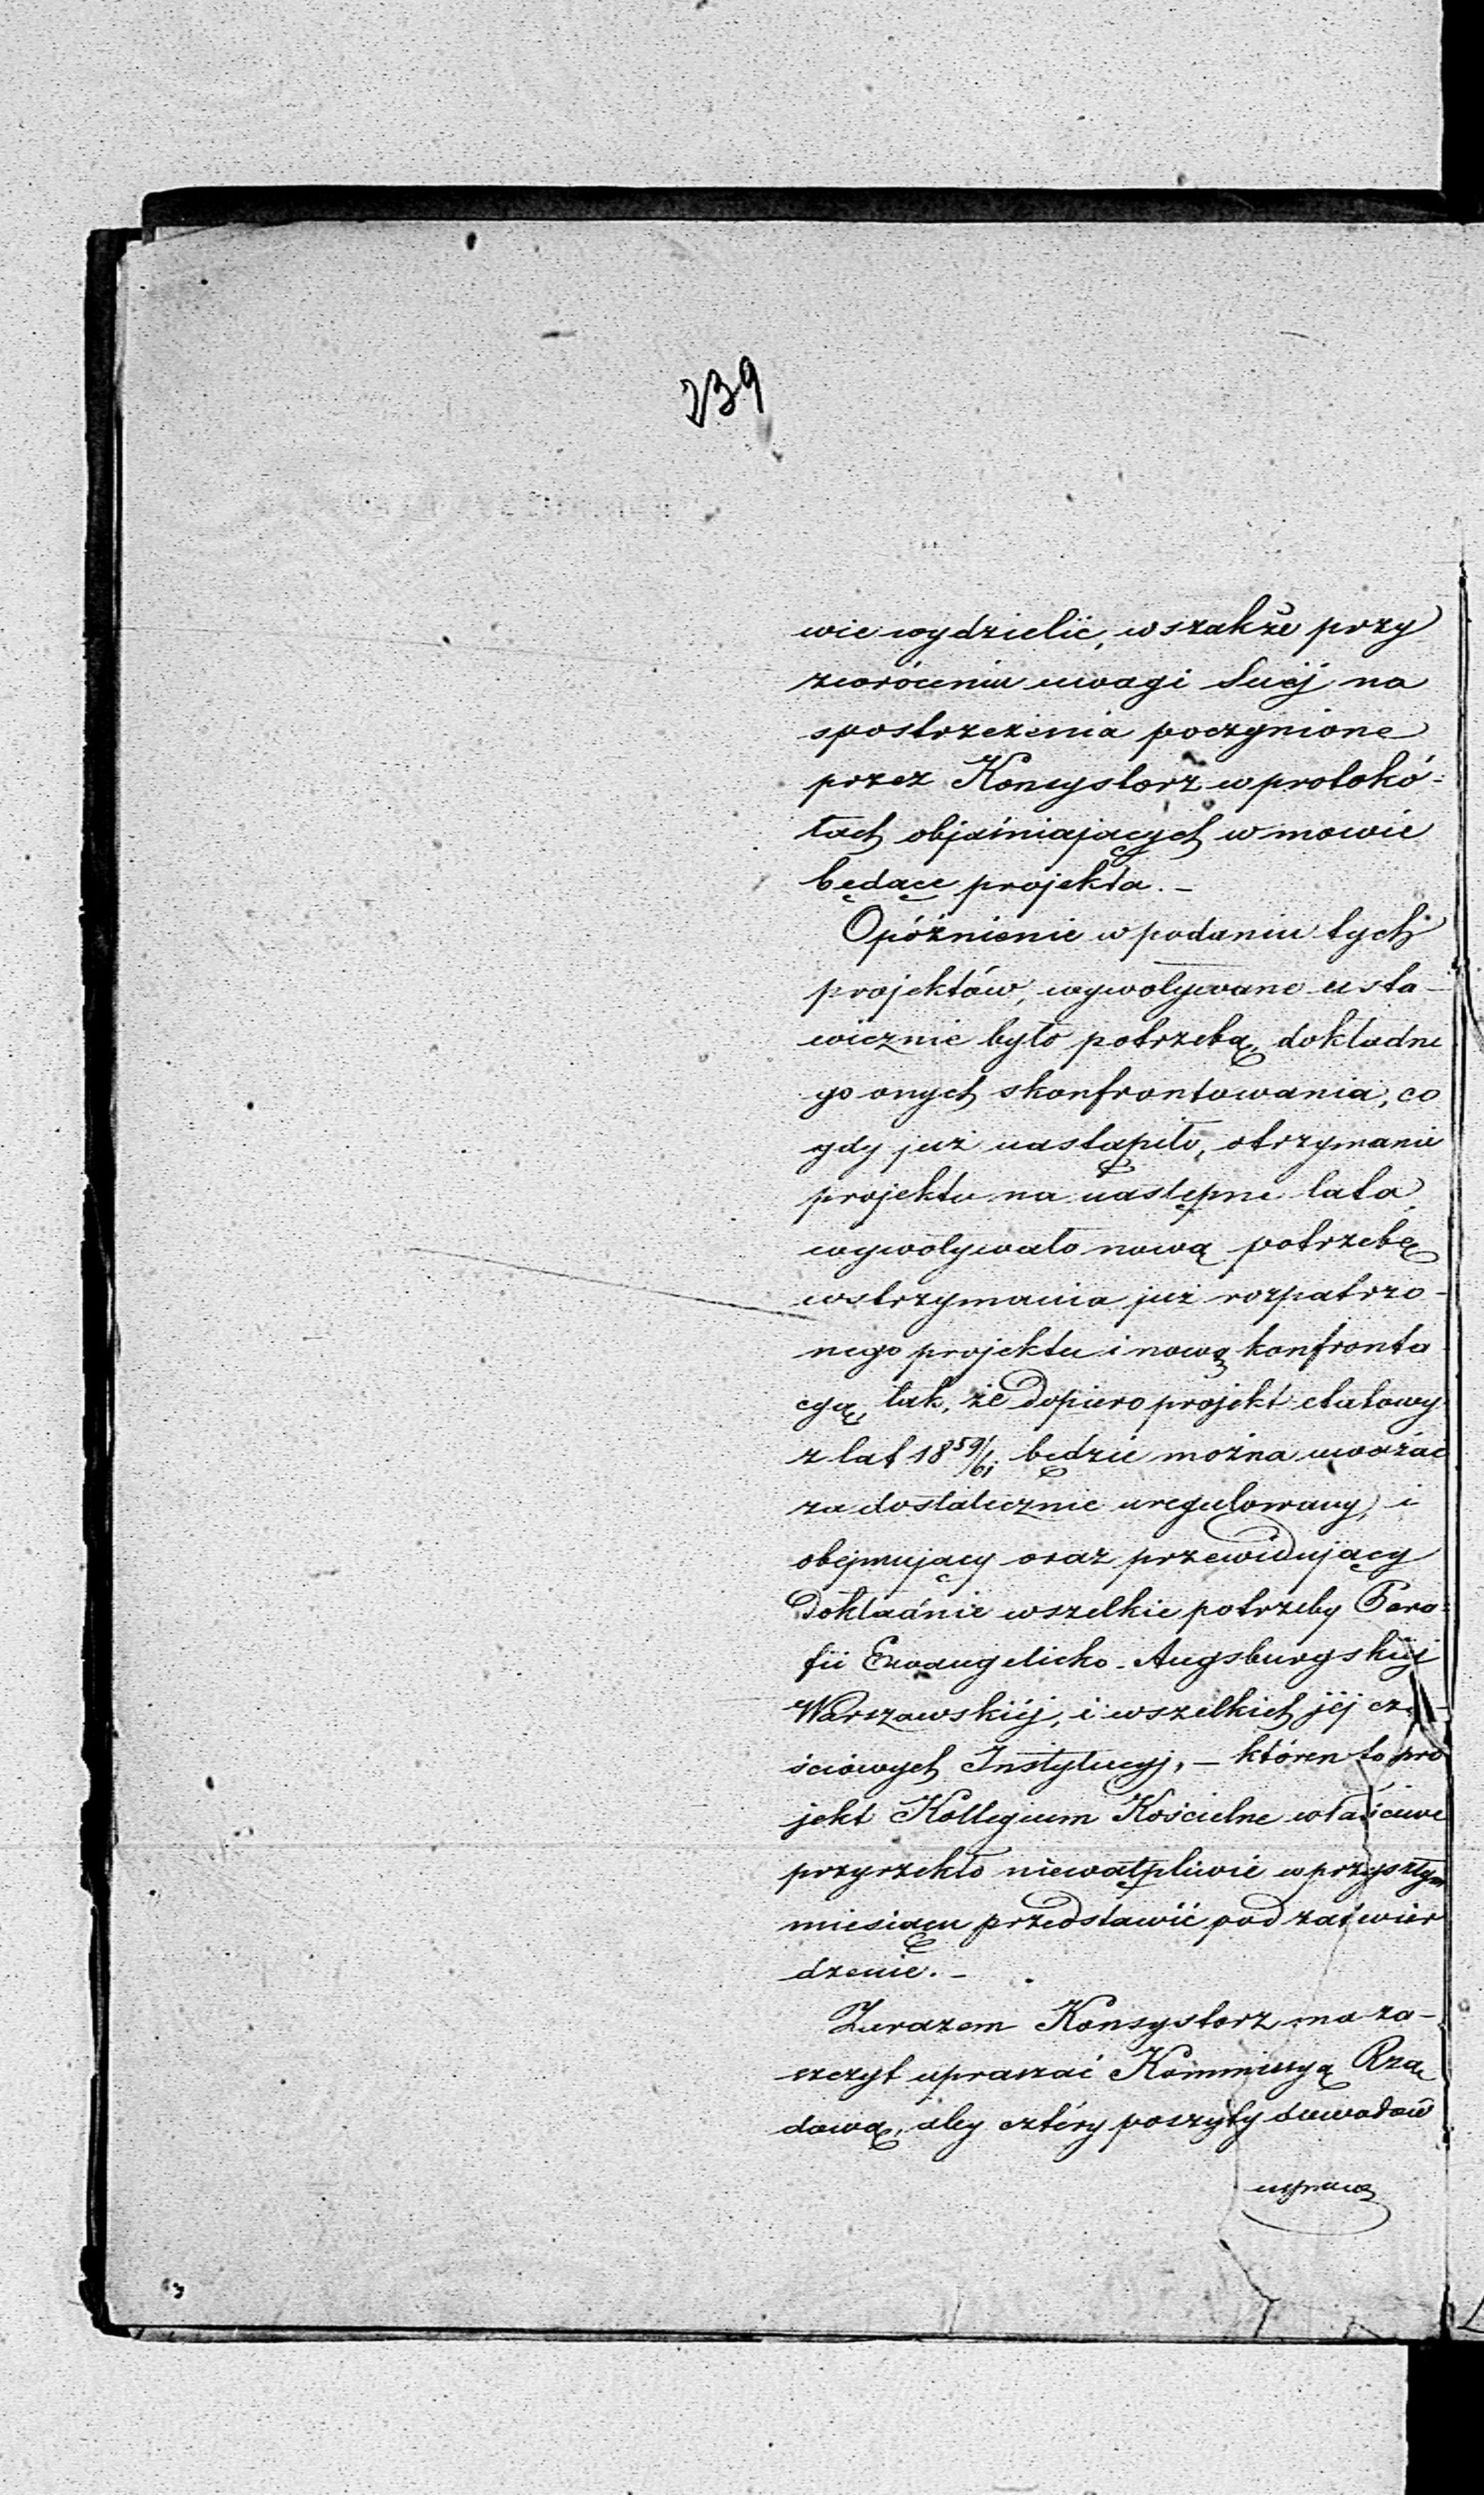 239
wie wydzielić, wszakże przy
zwróceniu uwagi Swéj na
spostrzeżenia poczynione
przez Konsystorz w protokó-
łach objaśniających w mowie
będące projekta. –
Opóźnienie w podaniu tych
projektów, wywoływane usta-
wicznie było potrzebą, dokładne
go onych skonfrontowania, co
gdy już nastąpiło, otrzymanie
projektu na następne lata
wywoływało nową potrzebę
wstrzymania już rozpatrzo-
nego projektu i nową konfronta
cyą, tak, że dopiero projekt etatowy
z lat 1859/61 będzie można uważać
za dostatecznie uregulowany, i
obejmujący oraz przewidujący
dokładnie wszelkie potrzeby Para-
fii Ewangelicko-Augsburgskiéj
Warszawskiéj, i wszelkich jéj czę-
ściowych Instytucyj, – któren to pro
jekt Kollegium Kościelne właściwe
przyrzekło niewątpliwie w przyszłym
miesiącu przedstawić pod zatwier
dzenie. –
Zarazem Konsystorz ma za-
szczyt upraszać Kommissyą Rzą
dową, aby cztéry poszyty dowodów